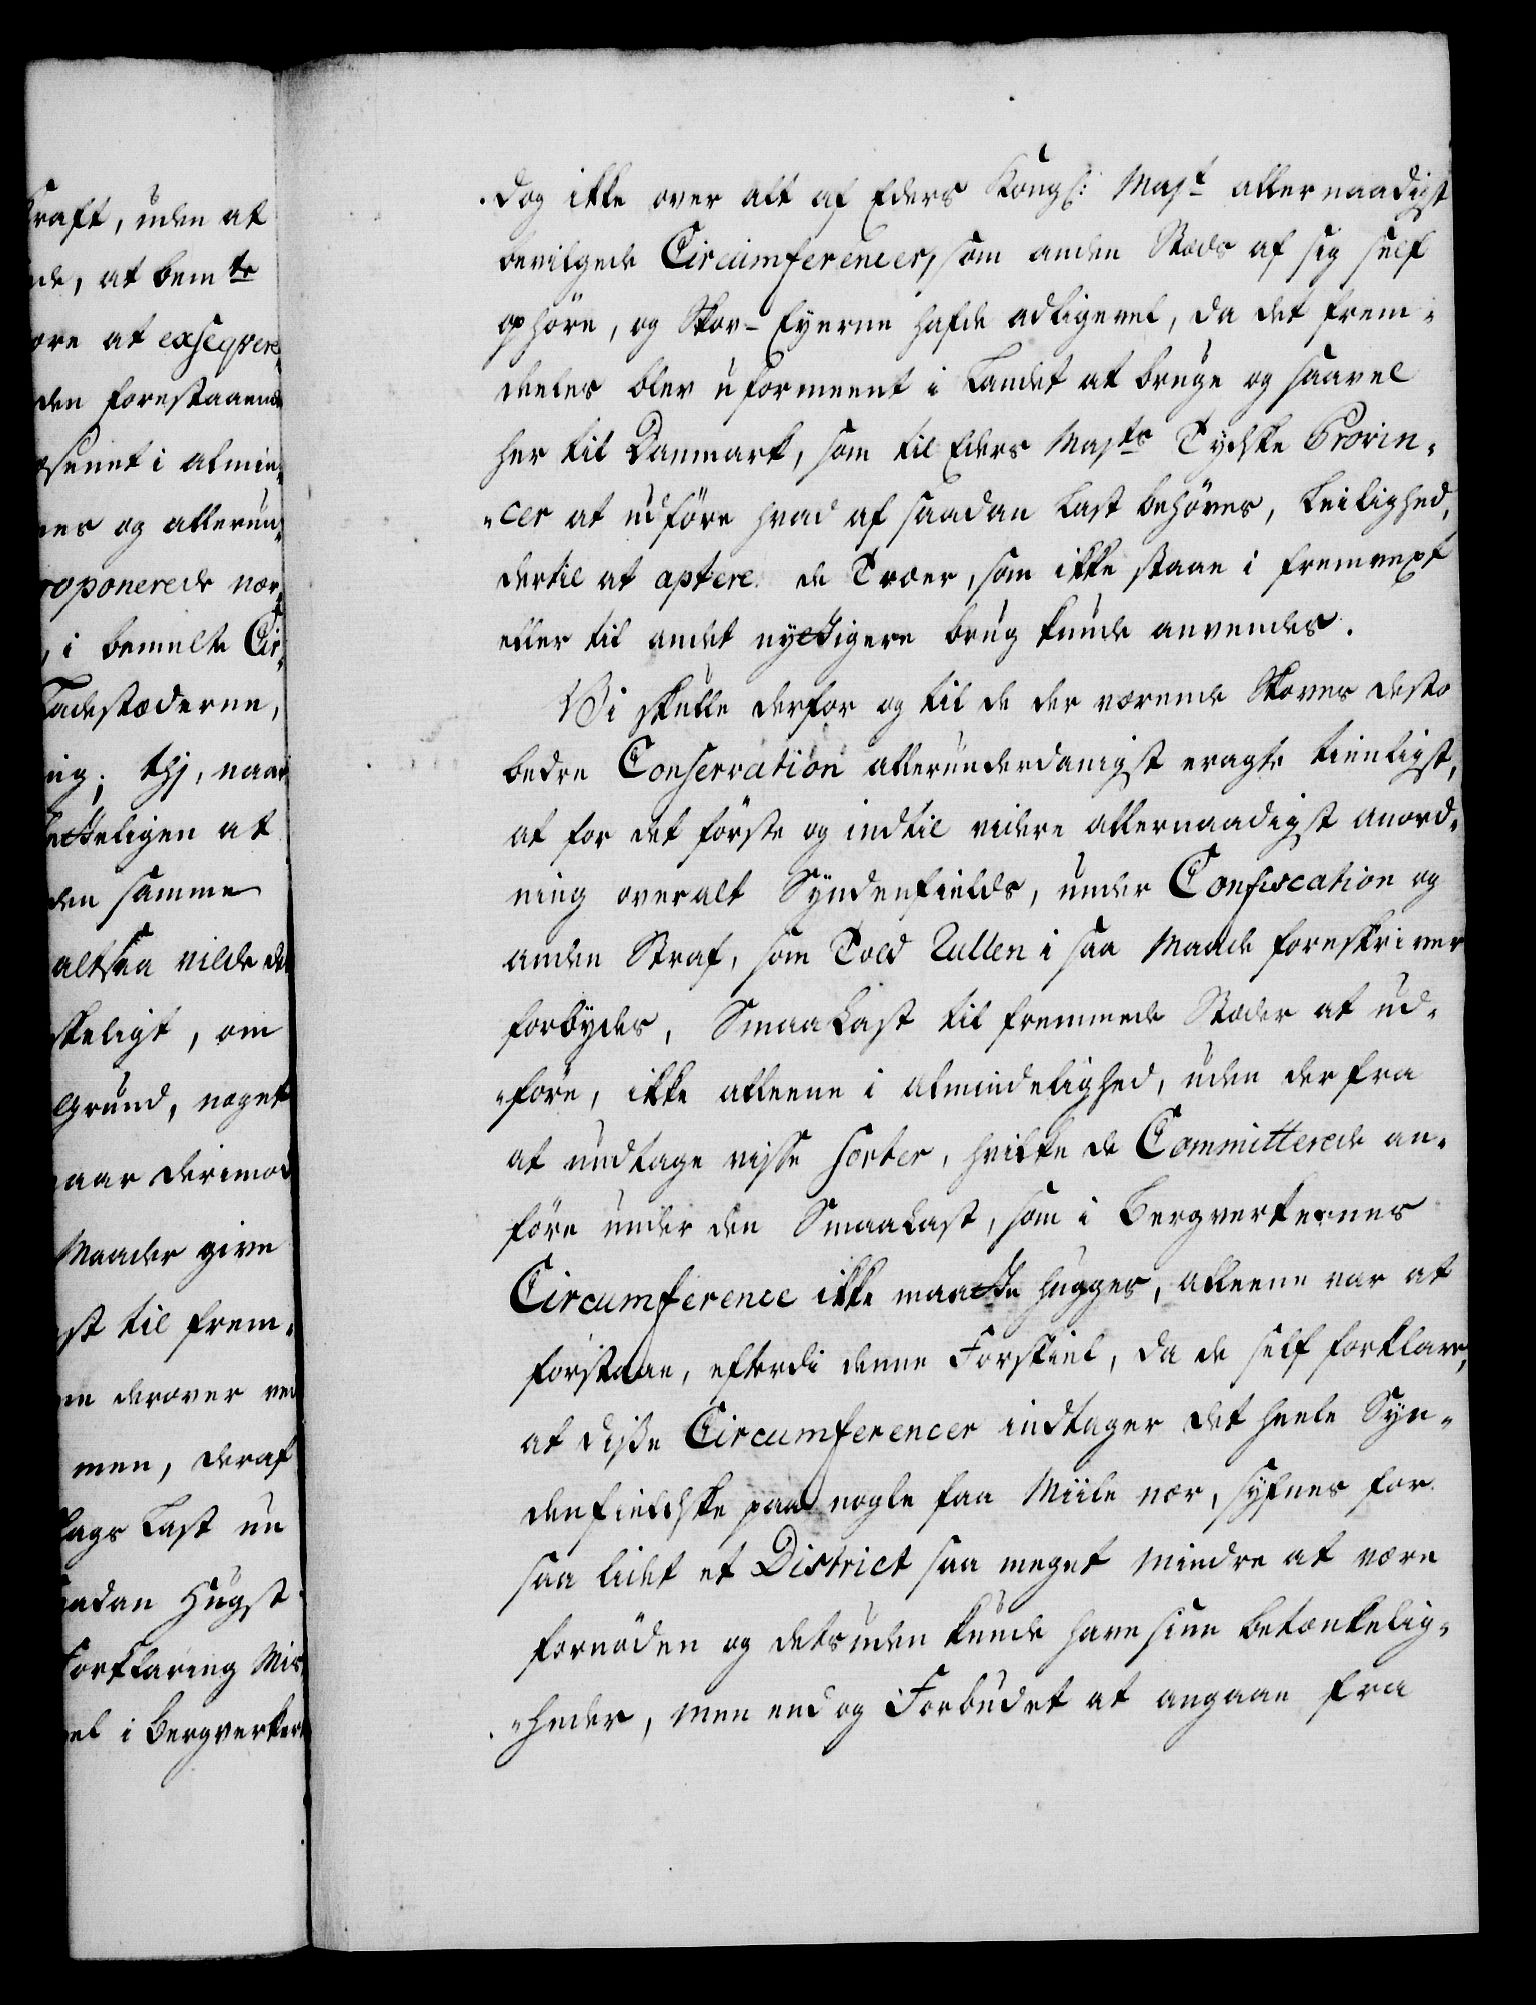 kraft, uden at
nde, at bemte
øre at exseqvere
den forestaaende
væsenet i almin-
nes og allerun-
roponerede nær-
, i bemelte Cir-
Ladestæderne,
ing; thj, naar
lackeligen at
den samme
altsaa vilde det
skeligt, om
Grund, noget
aar derimod
Maader give
ast til frem-
en derover ved
men, deraf
slags Last un
saadan Hugst
Forklaring Mis
el i Bergverker
dog ikke over alt af Eders Kongl: Majt allernaadigst
bevilgede Circumferencer, som anden Stæds af sig self
ophöre, og Skov-Eyerne hafde alligevel, da det frem-
deeles blev uformeent i Landet at bruge og saavel
her til Danmark, som til Eders Majts Tydske Provin-
cer at udföre hvad af saadan Last behöves, Leilighed,
dertil at aptere de Træer, som ikke staae i fremvext
eller til andet nyttigere brug kunde anvendes.
Vi skulle derfor og til de der værende Skoves desto
bedre Conservation allerunderdanigst eragte tienligst,
at for det förste og indtil videre allernaadigst anord-
ning overalt Syndenfields, under Confiscation og
anden Straf, som Told Rullen i saa Maade foreskriver
forbydes, SmaaLast til fremmede Stæder at ud-
före, ikke alleene i almindelighed, uden derfra
at undtage visse sorter, hvilke de Committerede an-
före under den SmaaLast, som i Bergverkernes
Circumference ikke maatte hugges, alleene var at
forstaae, efterdi denne Forskiel, da de self forklare,
at disse Circumferencer indtager det heele Syn-
denfieldske paa nogle faa Miile nær, syfnes for
saa lidet et District saa meget mindre at være
fornöden og detsuden kunde have sine betænkelig-
heder, men end og Forbudet at angaae fra